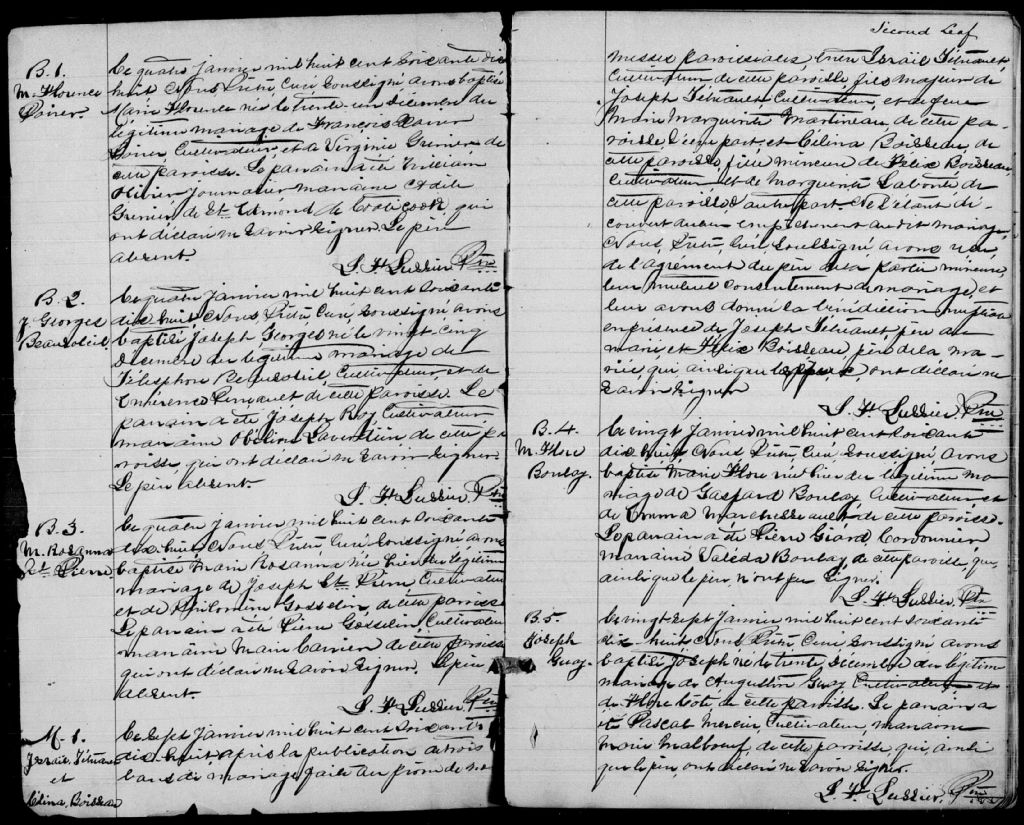 B.1.
M. Florence
Poirier.
Le quatre Janvier mil huit cent soixante dix
huit Nous Prêtre Curé soussigné avons baptisé
Marie Florence née le trente-un Décembre du
légitime mariage de François Xavier
Poirier, Cultivateur, et de Virginie Grenier de
cette paroisse. Le parrain a été William
Olivier Journalier marraine
Grenier de St. Edmond de Coaticook, qui
ont déclaré ne savoir signer. Le père
absent.
S. H. Lussier, Ptre
B.2.
J. Georges
Beausoleil.
Le quatre Janvier mil huit cent soixante
dix-huit, Nous Prêtre Curé, soussigné avons
baptisé Joseph Georges né le vingt cinq
Décembre du légitime mariage de
Télesphore Beausoleil, Cultivateur, et de
de cette paroisse. Le
parrain a été Joseph Roy Cultivateur
marraine Obéline de cette pa
roisse, qui ont déclaré ne savoir signer
Le père absent.
S. H. Lussier, Ptre
B.3
M. Rosanna
St. Pierre
Le quatre Janvier mil huit cent soixante
dix-huit Nous Prêtre, Curé soussigné avons
baptisé Marie Rosanna née hier du légitime
mariage de Joseph St. Pierre Cultivateur
et de Philomène Gosselin, de cette paroisse
Le parrain a été Pierre Gosselin, Cultivateur
marraine Marie Carrier de cette paroisse
qui ont déclaré ne savoir signer. Le père
absent.
S. H. Lussier Ptre
M.1.
Israël Tétreault
et
Célina Boisseau
Le sept Janvier mil huit cent soixante
dix-huit après la publication de trois
bans de mariage faite au prône de nos
Second Leaf
messes paroissiales, entre Israël Tétreault
Cultivateur de cette paroisse, fils majeur de
Joseph Tétreault Cultivateur, et de feue
Marie Marguerite Martineau de cette pa-
roisse, d'une part, et Célina Boisseau, de
cette paroisse, fille mineure de Félix Boisseau
Cultivateur et de Marguerite Labonté de
cette paroisse, d'autre part. Ne s'étant dé-
couvert aucun empêchement au dit mariage,
Nous, Prêtre, Curé soussigné, avons reçu,
de l'agrément du père de la partie mineure
leur mutuel consentement de mariage, et
leur avons donné la bénédiction nuptiale
en présence de Joseph Tétreault père du
marié et Félix Boisseau père de la ma-
riée qui ainsi que les époux, ont déclaré ne
savoir signer
S. H. Lussier Ptre
B.4.
M. Flore
Boulay.
Le vingt Janvier mil huit cent soixante
dix huit Nous Prêtre, Curé soussigné avons
baptisé Marie Flore née hier du légitime ma
riage de Gaspard Boulay Cultivateur et
de Emma Marchesseault de cette paroisse.
Le parrain a été Pierre Giard, Cordonnier
marraine Valéda Boulay, de cette paroisse, qui,
ainsi que le père, n'ont pu signer.
S. H. Lussier, Ptre
B.5.
Joseph
Guay.
Le vingt sept Janvier mil huit cent soixante
dix huit Nous Prêtre, Curé soussigné avons
baptisé Joseph né le trente Décembre du légitime
mariage de Augustin Guay Cultivateur et
de Flore Côté, de cette paroisse. Le parrain a
été Pascal Mercier, Cultivateur, marraine
Marie Malboeuf, de cette paroisse, qui, ainsi
que le père, ont déclaré ne savoir signer.
S. H. Lussier, Ptre